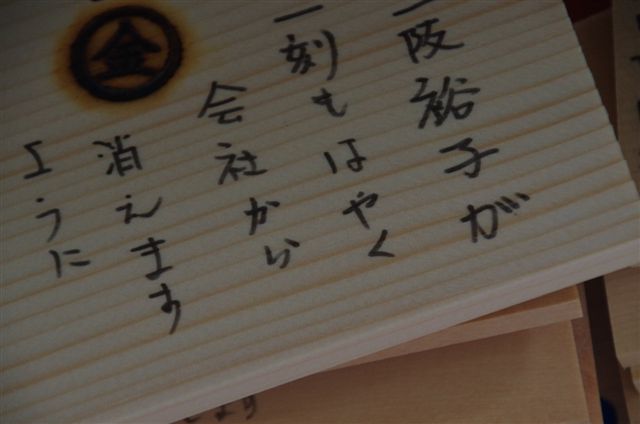 一阪裕子が
一刻もはやく
会社から
消えます
ように
金
ます